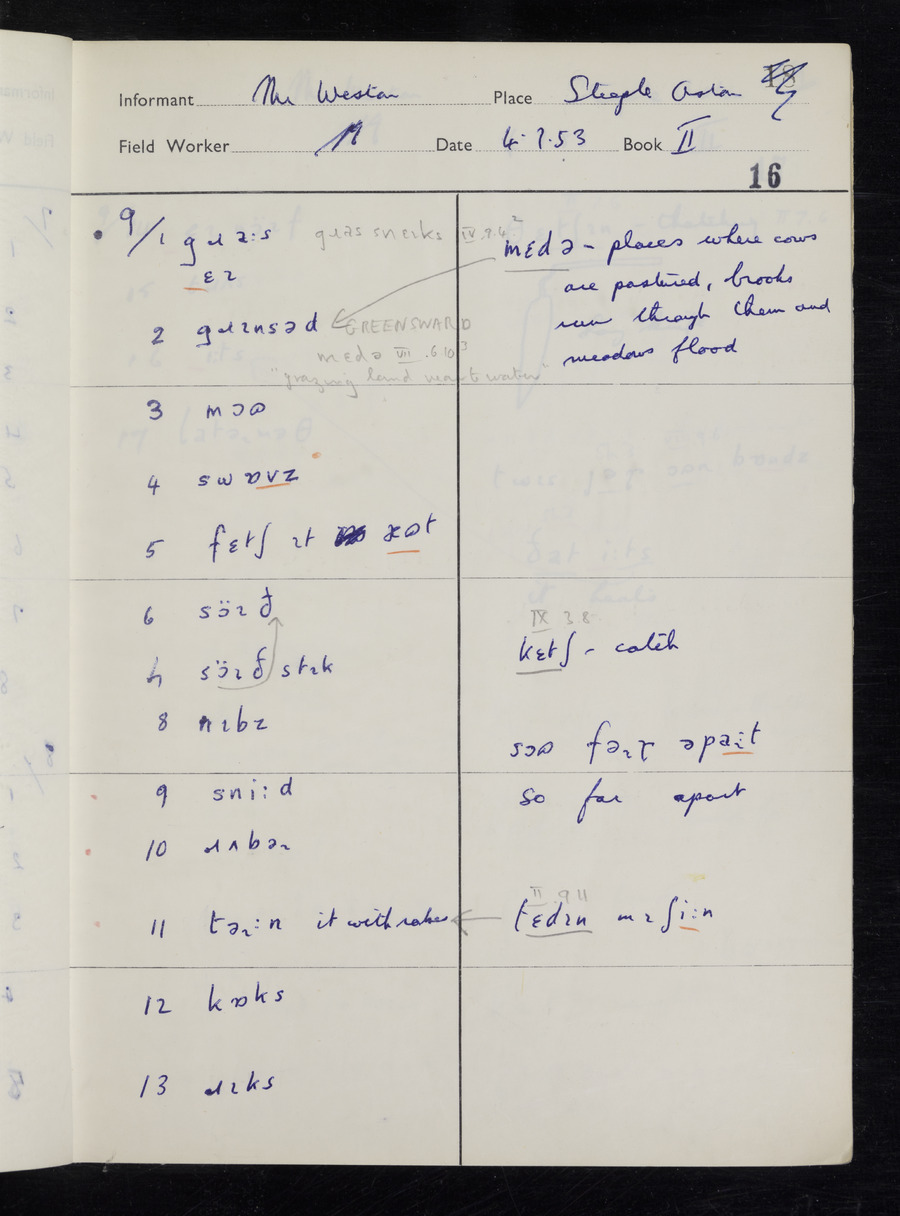 Informant Mr Weston Place Steeple Aston
Field Worker Date 4.7.53 Book II
16
9/1 gɹaːs
mɛdə – places where cows
are pastured, brooks
run through them and
meadows flood
ɛɪ
2 gɹɪnsəd GREENSWARD
mɛdə VII.6.10³
"grazing land near water"
3 mɔʊ
4 swɒvz
5 fɛtʃ ɪt
6 sɔ̈ɪð
IX 3 8
kɛtʃ – catch
7 sɔ̈ɪð stɪk
8 nɪbz
9 sniːd
so far apart
10 ɹʌbəɪ
II 9 11
11 təɪːn it with rakes
tɛdɪn mɪʃiːn
12 kɒks
13 ɹɪks